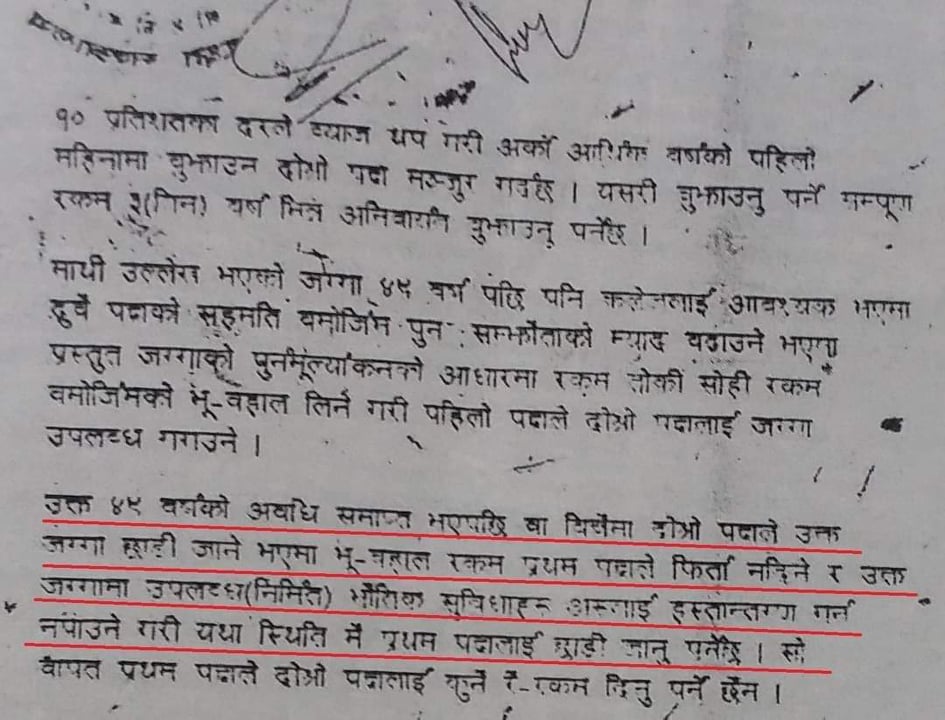 १० प्रतिशतका दरले व्याज थप गरी अर्को आर्थिक वर्षको पहिलो
महिनामा बुझाउन दोश्रो पक्ष मञ्जुर गर्दछ । यसरी बुझाउनु पर्ने सम्पूर्ण
रकम ३(तिन) वर्ष भित्र अनिवार्यत बुझाउनु पर्नेछ ।
माथी उल्लेख भएको जग्गा ४५ वर्ष पछि पनि कलेजलाई आवश्यक भएमा
दुवै पक्षको सहमति वमोजिम पुन: सम्झौताको म्याद बढाउने भएमा
प्रस्तुत जग्गाको पुनर्मूल्यांकनको आधारमा रकम तोकी सोही रकम
वमोजिमको भू-वहाल लिने गरी पहिलो पक्षले दोश्रो पक्षलाई जग्गा
उपलब्ध गराउने ।
उक्त ४५ वर्षको अवधि समाप्त भएपछि वा विचैमा दोश्रो पक्षले उक्त
जग्गा छाडी जाने भएमा भू-वहाल रकम प्रथम पक्षले फिर्ता नदिने र उक्त
जग्गामा उपलब्ध(निर्मित) भौतिक सुविधाहरु अरुलाई हस्तान्तरण गर्न
नपाउने गरी यथा स्थिति मै प्रथम पक्षलाई छाडी जानु पर्नेछ । सो
वापत प्रथम पक्षले दोश्रो पक्षलाई कुनै रकम दिनु पर्ने छैन ।